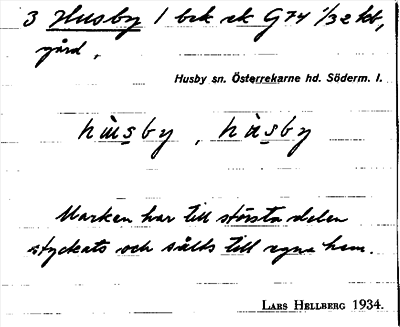 3 Husby 1 bck ek G74 1/32 kb,
gård.
Husby sn. Österrekarne hd. Söderm. l.
hùsby, hùsby
Marken har till största delen
styckats och sålts till egna hem.
Lars Hellberg 1934.